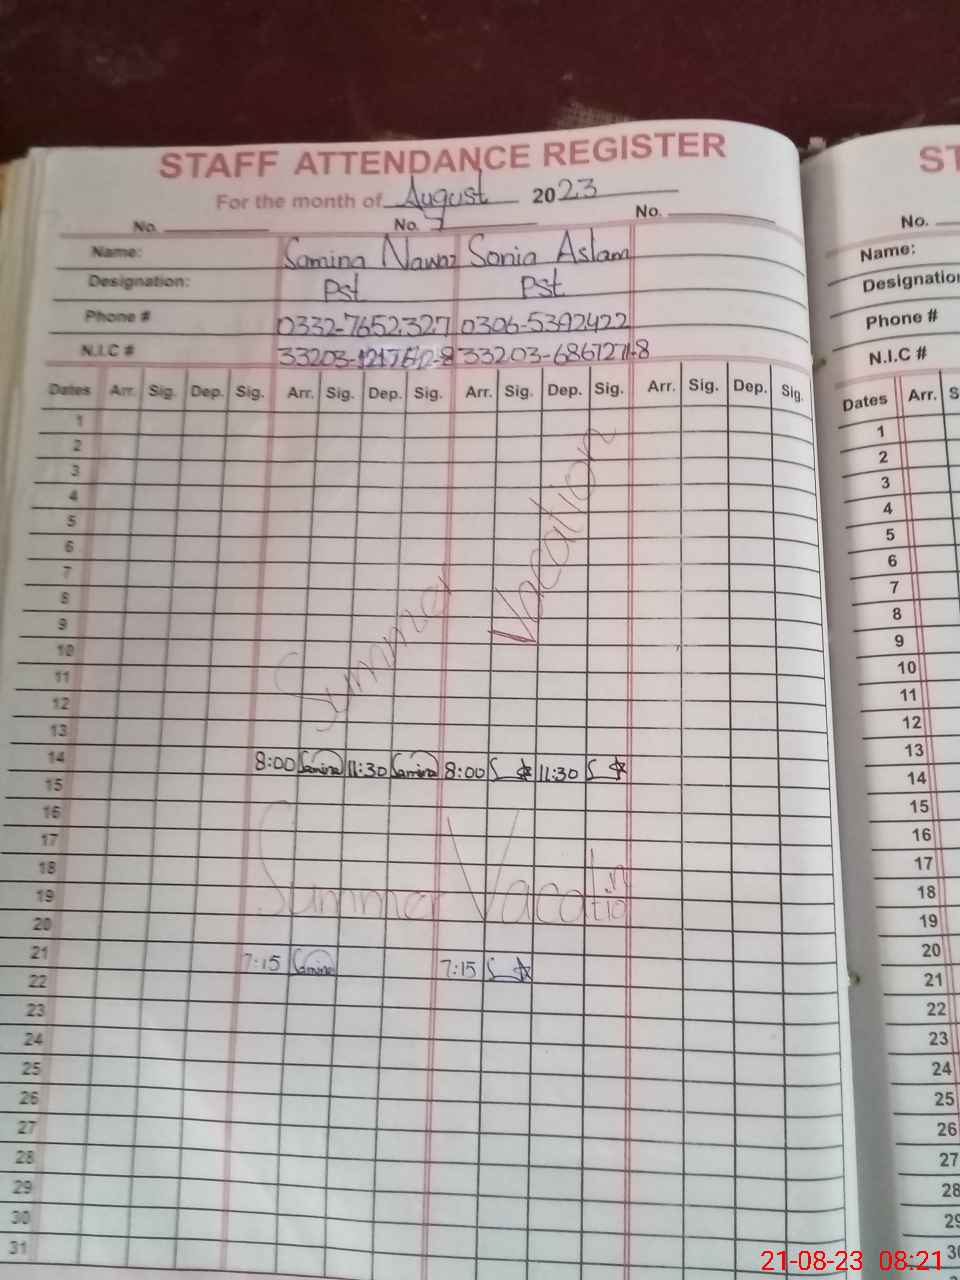 STAFF ATTENDANCE REGISTER
For the month of August 2023
No. No. No.
Name: Samina Nawaz Sonia Aslam
Designation: Pst Pst
Phone # 0332-7652327 0306-5392422
N.I.C # 33203- 33203-6867271-8
Dates Arr. Sig. Dep. Sig. Arr. Sig. Dep. Sig. Arr. Sig. Dep. Sig. Arr. Sig. Dep. Sig.
1
2
3
4
5
6
7
8
9
10
11
12
13
Summer Vacation
14 8:00 Samina 11:30 Samina 8:00 11:30
15
16
17
18
19
Summer Vacation
20
21 7:15 Samina 7:15
22
23
24
25
26
27
28
29
30
31
ST
No.
Name:
Designation
Phone #
N.I.C #
Dates Arr. S
1
2
3
4
5
6
7
8
9
10
11
12
13
14
15
16
17
18
19
20
21
22
23
24
25
26
27
28
29
30
21-08-23 08:21